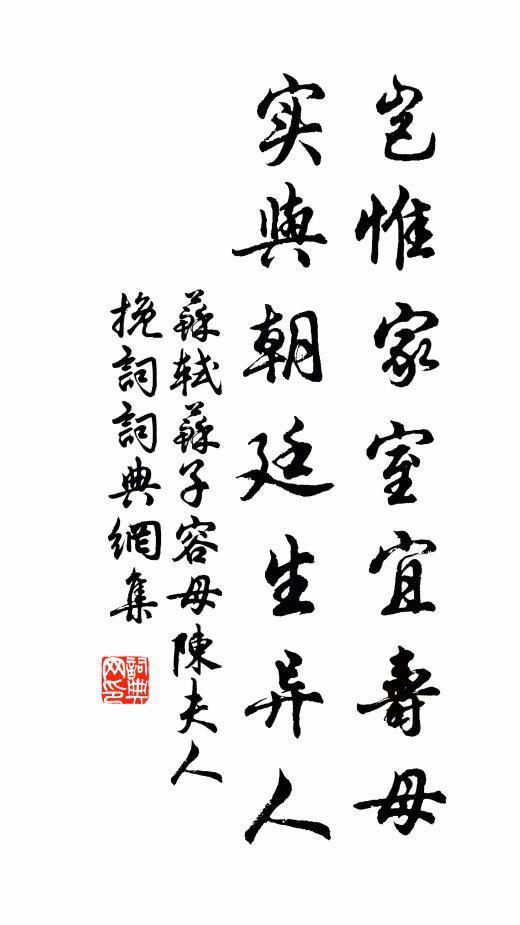 岂惟家室宜壽母
实與朝廷生异人
蘇軾蘇子容母陳夫人
挽詞詞典網集
詞典網印